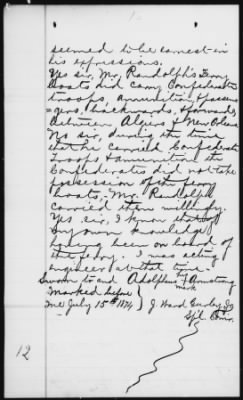 seemed to be earnest in
his expressions.
Yes sir, Mr. Randolph's Ferry
Boats did carry Confederate
troops, ammunition & passen
=gers, backwards, & forwards,
between Algiers & New Orleans
No sir, during the time
that he carried Confederate
Troops & ammunition the
Confederates did not take
possession of the ferry
boats, Mr. Randolph
carried them willingly.
Yes, sir, I know that of
my own knowledge
having been on board of
the ferry. I was acting
engineer at that time.
Sworn to and Adolphus + Armstrong
mark
Marked before
me July 15th 1874 } J. Ward Gurley Jr
Spl. Comr.
12